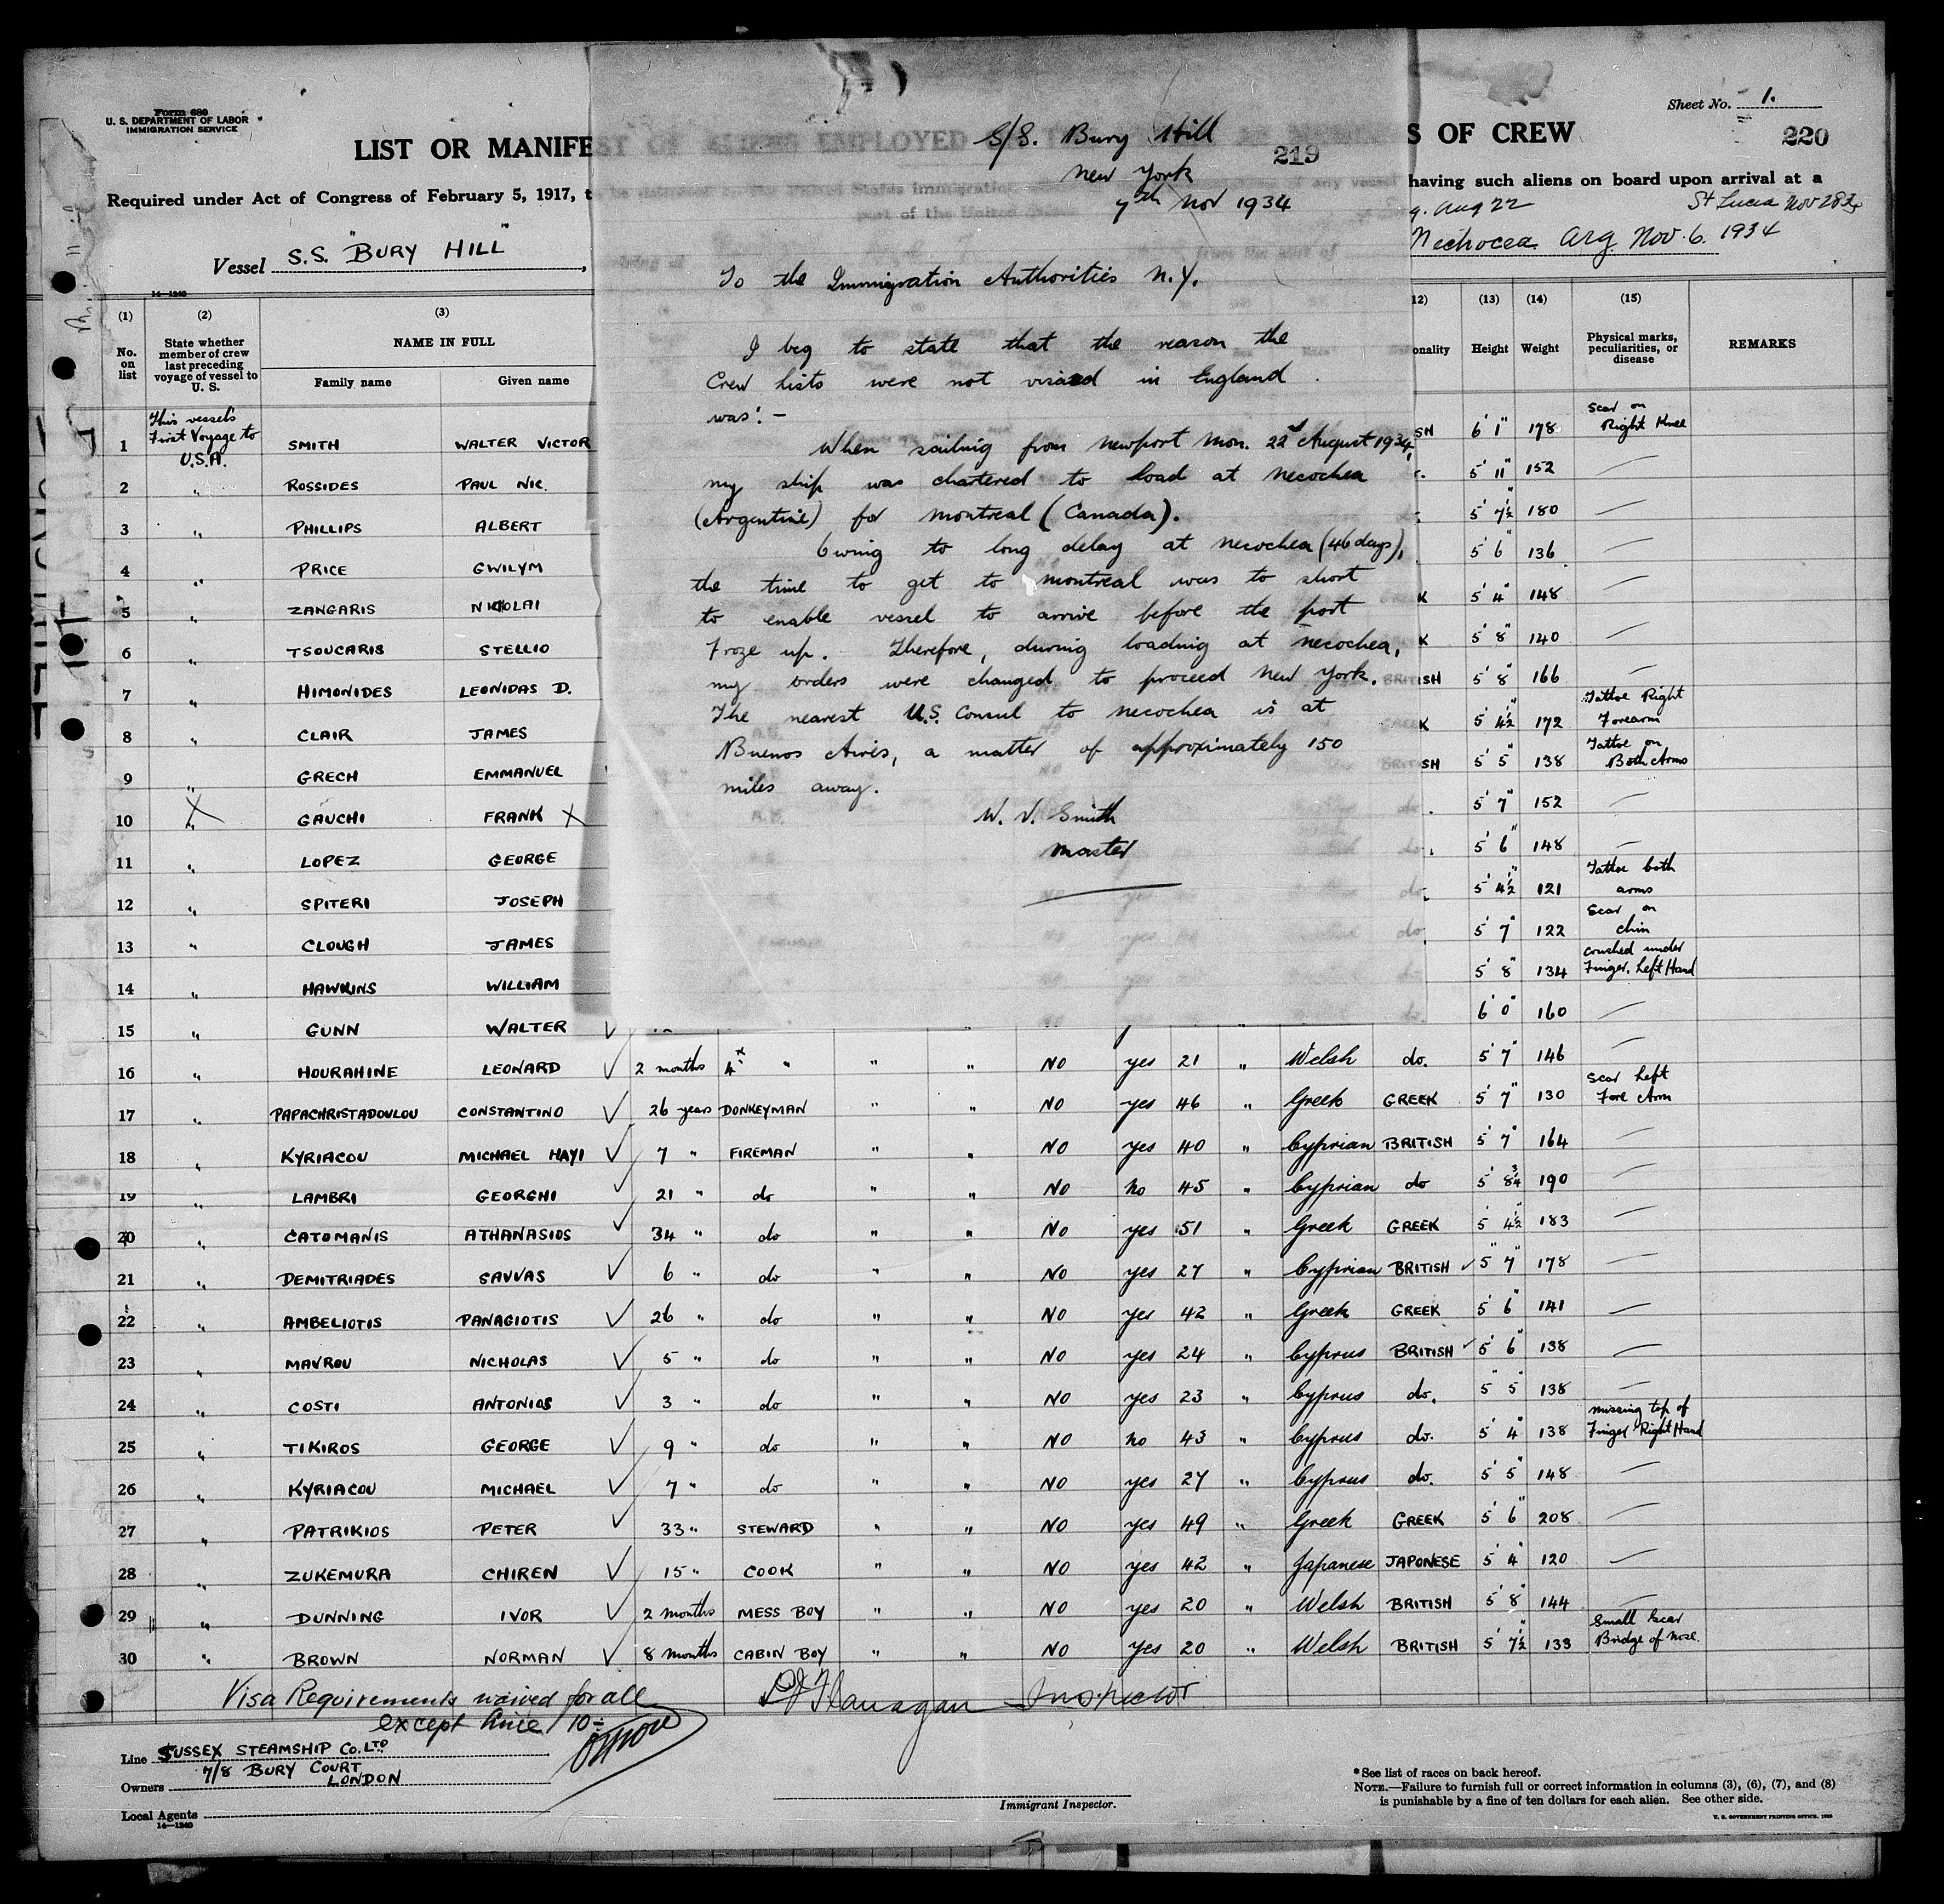 Form 680
U. S. DEPARTMENT OF LABOR
IMMIGRATION SERVICE
Sheet No. 1.
LIST OR MANIFEST OF ALIENS EMPLOYED S OF CREW
220
Required under Act of Congress of February 5, 1917, t having such aliens on board upon arrival at a
Aug 22 St Lucia Nov 28
Vessel S.S. "BURY HILL", Nechocea Arg. Nov. 6. 1934
S/S. Bury Hill
219
New York
7th Nov 1934
To the Immigration Authorities N.Y.
I beg to state that the reason the
Crew Lists were not visaed in England
was:-
When sailing from Newport Mon. 22nd August 1934,
my ship was chartered to load at Necochea
(Argentine) for Montreal (Canada).
Owing to long delay at Necochea (46 days),
the time to get to Montreal was to short
to enable vessel to arrive before the port
Froze up. Therefore, during loading at Necochea,
my orders were changed to proceed New York.
The nearest U.S. Consul to Necochea is at
Buenos Aires, a matter of approximately 150
miles away.
W. V. Smith
Master
14-1240
(1) (2) (3) 12) (13) (14) (15)
No. on list State whether member of crew last preceding voyage of vessel to U. S. NAME IN FULL onality Height Weight Physical marks, peculiarities, or disease REMARKS
Family name Given name
1 This vessel's First Voyage to U.S.A. SMITH WALTER VICTOR SH 6' 1" 178 Scar on Right Knee
2 " ROSSIDES PAUL NIC. 5' 11" 152 —
3 " PHILLIPS ALBERT 5' 7½" 180 —
4 " PRICE GWILYM 5' 6" 136 —
5 " ZANGARIS NIKOLAI K 5' 4" 148 —
6 " TSOUCARIS STELLIO K 5' 8" 140 —
7 " HIMONIDES LEONIDAS D. BRITISH 5' 8" 166 —
8 " CLAIR JAMES K 5' 4½" 172 Tattoe Right Forearm
9 " GRECH EMMANUEL BRITISH 5' 5" 138 Tattoe on Both Arms
10 " X GAUCHI FRANK X 5' 7" 152 —
11 " LOPEZ GEORGE do. 5' 6" 148 —
12 " SPITERI JOSEPH do. 5' 4½" 121 Tattoe both arms
13 " CLOUGH JAMES do 5' 7" 122 Scar on chin
14 " HAWKINS WILLIAM 5' 8" 134 couched under Finger. Left Hand
15 " GUNN WALTER √ do. 6' 0" 160 —
16 " HOURAHINE LEONARD √ 2 months 4x " " " NO yes 21 " Welsh do. 5' 7" 146 —
17 " PAPACHRISTADOULOU CONSTANTINO √ 26 years DONKEYMAN " " NO yes 46 " Greek GREEK 5' 7" 130 Scar Left Fore Arm
18 " KYRIACOU MICHAEL HAYI √ 7 " FIREMAN " " NO yes 40 " Cyprian BRITISH 5' 7" 164 —
19 " LAMBRI GEORGHI √ 21 " do " " NO no 45 " Cyprian do 5' 8¾ 190 —
20 " CATOMANIS ATHANASIOS √ 34 " do " " NO yes 51 " Greek GREEK 5' 4½" 183 —
21 " DEMITRIADES SAVVAS √ 6 " do " " NO yes 27 " Cyprian BRITISH √ 5" 7" 178 —
22 " AMBELIOTIS PANAGIOTIS √ 26 " do " " NO yes 42 " Greek GREEK 5' 6" 141 —
23 " MAVROU NICHOLAS √ 5 " do " " NO yes 24 " Cyprus BRITISH √ 5' 6" 138 —
24 " COSTI ANTONIOS √ 3 " do " " NO yes 23 " Cyprus do. 5" 5" 138 —
25 " TIKIROS GEORGE √ 9 " do " " NO no 43 " Cyprus do. 5' 4" 138 missing top of Finger Right Hand
26 " KYRIACOU MICHAEL √ 7 " do " " NO yes 27 " Cyprus do. 5' 5" 148 —
27 " PATRIKIOS PETER √ 33 " STEWARD " " NO yes 49 " Greek GREEK 5' 6" 208 —
28 " ZUKEMURA CHIREN √ 15 " COOK " " NO yes 42 " Japanese JAPONESE 5' 4" 120 —
29 " DUNNING IVOR √ 2 months MESS BOY " " NO yes 20 " Welsh BRITISH 5' 8" 144 —
30 " BROWN NORMAN √ 8 months CABIN BOY " " NO Yes 20 " Welsh BRITISH 5' 7½" 133 Small Scar Bridge of Nose.
Visa Requirements waived for all Flanagan Inspector
except line 10
Line SUSSEX STEAMSHIP Co. LTD
7/8 BURY COURT
Owners LONDON
Local Agents
14—1240
Immigrant Inspector.
*See list of races on back hereof.
NOTE.—Failure to furnish full or correct information in columns (3), (6), (7), and (8)
is punishable by a fine of ten dollars for each alien. See other side.
U. S. GOVERNMENT PRINTING OFFICE.